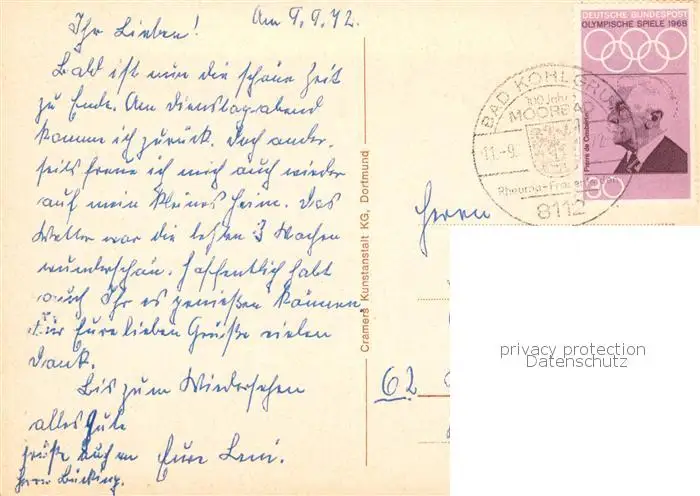 Am 9.9.72.
Ihr Lieben!
Bald ist nun die schöne Zeit
zu Ende. Am Dienstagabend
komme ich zurück. Doch ander-
seits freue ich mich auch wieder
auf mein kleines Heim. Das
Wetter war die letzten 3 Wochen
wunderschön. Hoffentlich habt
auch Ihr es genießen können.
Für Eure lieben Grüße vielen
Dank.
Bis zum Wiedersehen
alles Gute
Eure Leni.
Grüße auch an
Herrn Bücking.
Cramers Kunstanstalt KG, Dortmund
DEUTSCHE BUNDESPOST
OLYMPISCHE SPIELE 1968
Pierre de Coubertin
30
BAD KOHLGRUB
100 Jahre
MOORBAD
11.-9.
Rheuma-Frauenleiden
8112
Herrn
62
privacy protection
Datenschutz